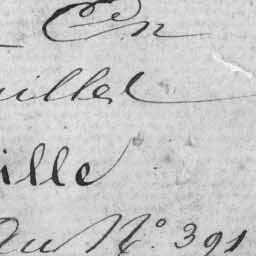 En
uillet
ille
Au N° 391